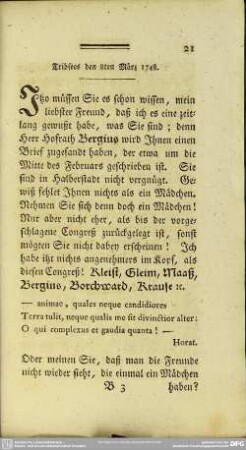 21
Tribsees den 8ten März 1748.
Itzo müssen Sie es schon wissen, mein
liebster Freund, daß ich es eine zeit-
lang gewußt habe, was Sie sind; denn
Herr Hofrath Bergius wird Ihnen einen
Brief zugesandt haben, der etwa um die
Mitte des Februars geschrieben ist. Sie
sind in Halberstadt nicht vergnügt. Ge-
wiß fehlet Ihnen nichts als ein Mädchen.
Nehmen Sie sich denn doch ein Mädchen!
Nur aber nicht eher, als bis der vorge-
schlagene Congreß zurückgelegt ist, sonst
mögten Sie nicht dabey erscheinen! Ich
habe itzt nichts angenehmers im Kopf, als
diesen Congreß! Kleist, Gleim, Maaß,
Bergius, Borchward, Krause ꝛc.
— animae, quales neque candidiores
Terra tulit, neque qualis me sit divinctior alter:
O qui complexus et gaudia quanta! —
Horat.
Oder meinen Sie, daß man die Freunde
nicht wieder sieht, die einmal ein Mädchen
B 3 haben?
DFG